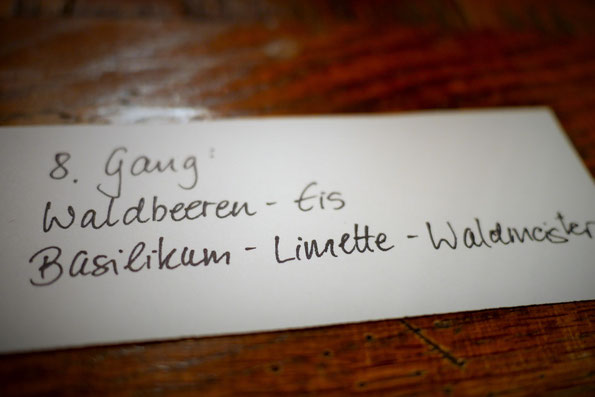 8. Gang:
Waldbeeren - Eis
Basilikum - Limette - Waldmeister